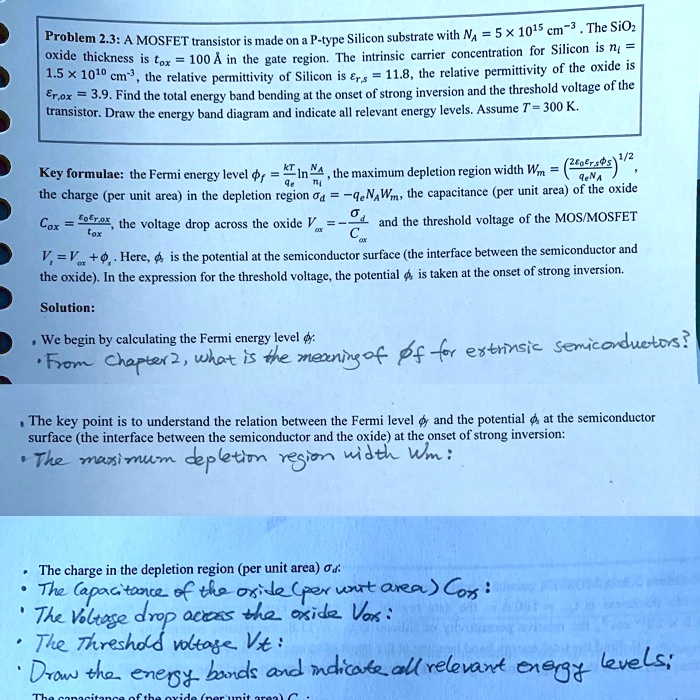 Problem 2.3: A MOSFET transistor is made on a P-type Silicon substrate with N_A = 5 × 10^15 cm^-3. The SiO2
oxide thickness is t_ox = 100 Å in the gate region. The intrinsic carrier concentration for Silicon is n_i =
1.5 × 10^10 cm^-3, the relative permittivity of Silicon is ε_r,s = 11.8, the relative permittivity of the oxide is
ε_r,ox = 3.9. Find the total energy band bending at the onset of strong inversion and the threshold voltage of the
transistor. Draw the energy band diagram and indicate all relevant energy levels. Assume T = 300 K.
Key formulae: the Fermi energy level ϕ_f = kT/q_e ln N_A/n_i, the maximum depletion region width W_m = (2ε_0ε_r,sϕ_s/q_eN_A)^1/2,
the charge (per unit area) in the depletion region σ_d = −q_eN_AW_m, the capacitance (per unit area) of the oxide
C_ox = ε_0ε_r,ox/t_ox, the voltage drop across the oxide V_ox = −σ_d/C_ox and the threshold voltage of the MOS/MOSFET
V_t = V_ox + ϕ_s. Here, ϕ_s is the potential at the semiconductor surface (the interface between the semiconductor and
the oxide). In the expression for the threshold voltage, the potential ϕ_s is taken at the onset of strong inversion.
Solution:
• We begin by calculating the Fermi energy level ϕ_f:
• From Chapter 2, what is the meaning of ϕf for extrinsic semiconductors?
• The key point is to understand the relation between the Fermi level ϕ_f and the potential ϕ_s at the semiconductor
surface (the interface between the semiconductor and the oxide) at the onset of strong inversion:
• The maximum depletion region width Wm:
• The charge in the depletion region (per unit area) σ_d:
• The Capacitance of the oxide (per unit area) Cox:
• The Voltage drop across the oxide Vox:
• The Threshold voltage Vt:
• Draw the energy bands and indicate all relevant energy levels;
The capacitance of the oxide (per unit area) C